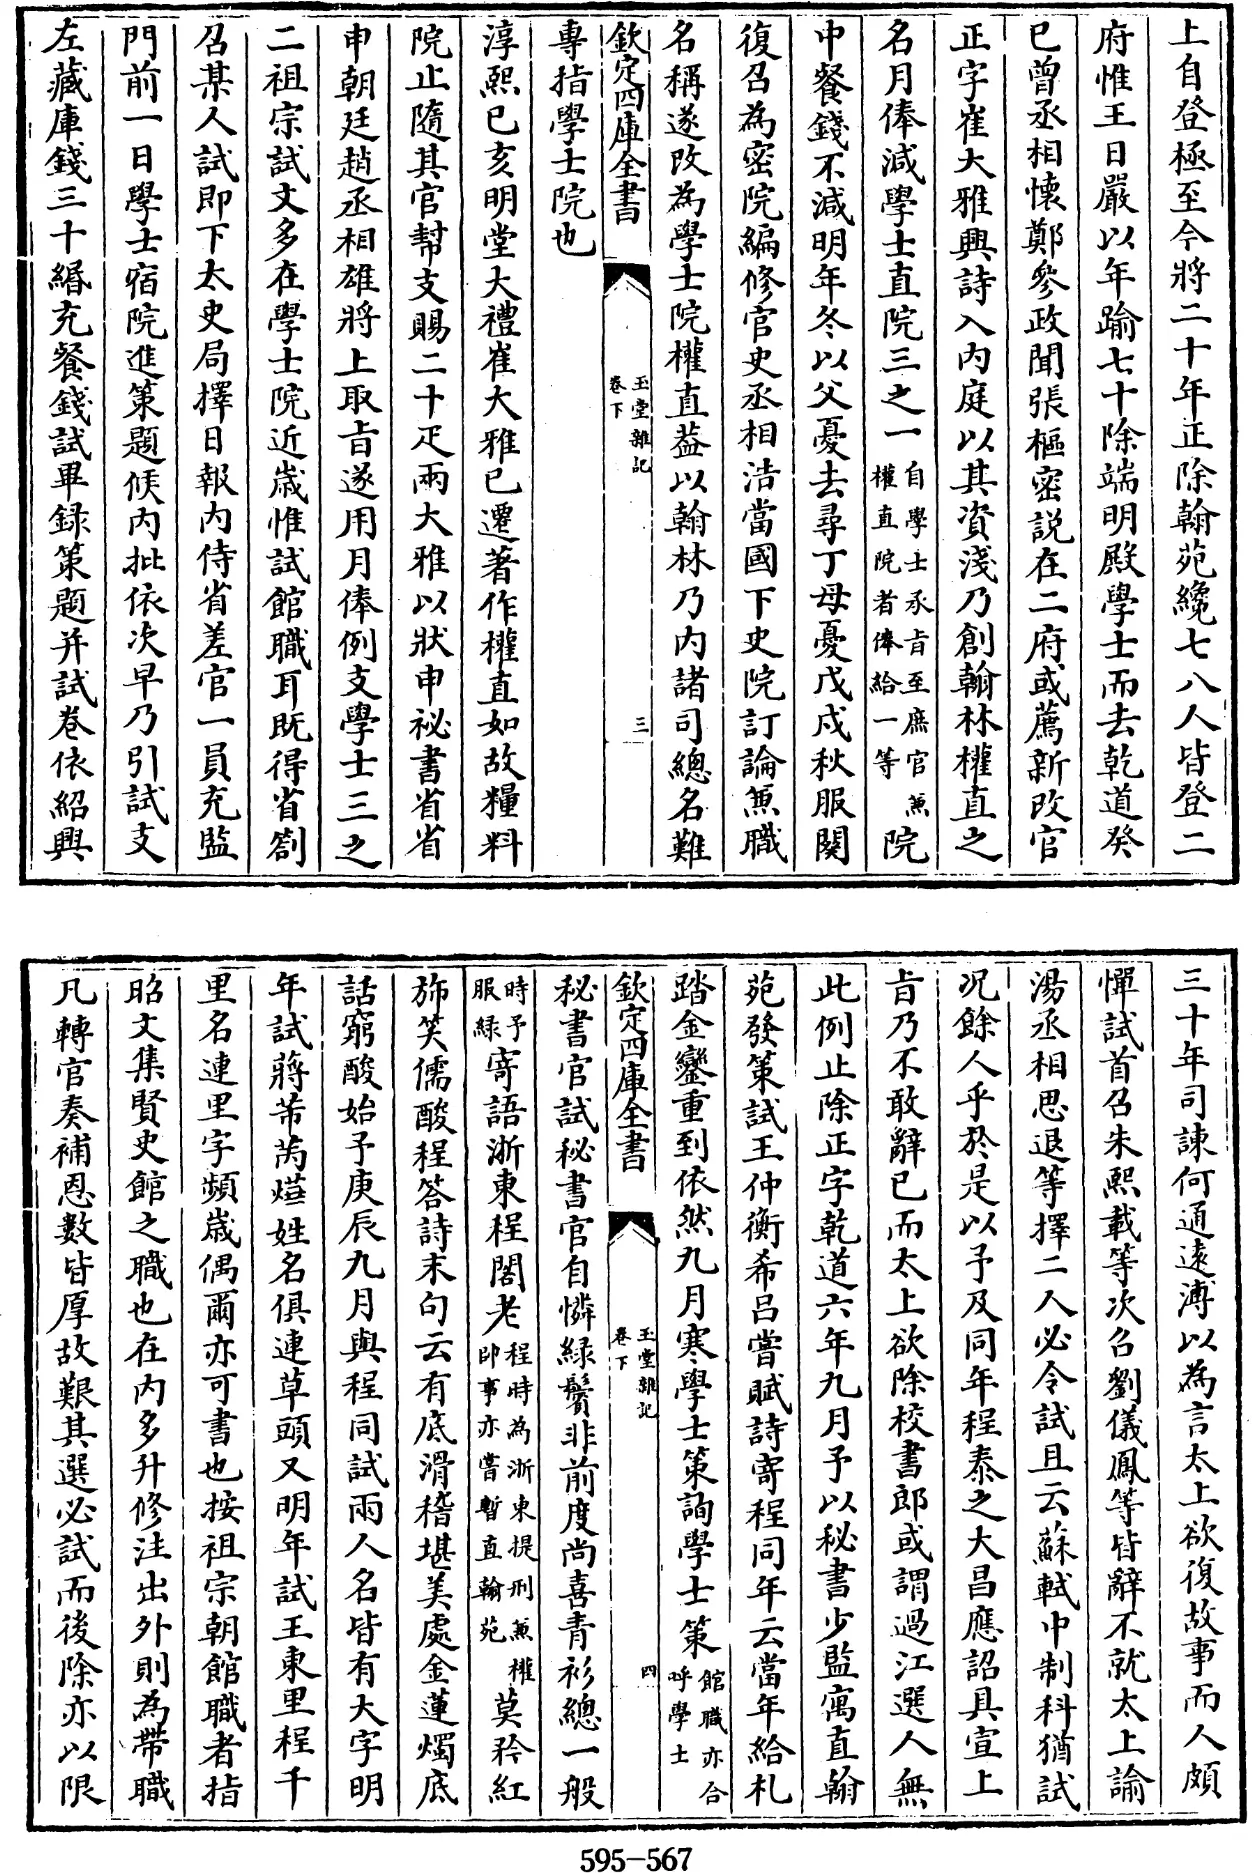 上自登極至今將二十年正除翰苑纔七八人皆登二
府惟王日嚴以年踰七十除端明殿學士而去乾道癸
巳曾丞相懷鄭參政聞張樞密説在二府或薦新改官
正字崔大雅興詩入内庭以其資淺乃創翰林權直之
名月俸減學士直院三之一自學士承㫖至庶官兼權直院者俸給一等院
中餐錢不減明年冬以父憂去尋丁母憂戊戌秋服闋
復召為密院編修官史丞相浩當國下史院訂論兼職
名稱遂改為學士院權直葢以翰林乃内諸司總名難
欽定四庫全書
玉堂雜記
卷下
三
專指學士院也
淳熙已亥明堂大禮崔大雅已遷著作權直如故糧料
院止隨其官幇支賜二十疋兩大雅以狀申祕書省省
申朝廷趙丞相雄將上取㫖遂用月俸例支學士三之
二祖宗試文多在學士院近歲惟試館職耳既得省劄
召某人試即下太史局擇日報内侍省差官一員充監
門前一日學士宿院進策題候内批依次早乃引試支
左藏庫錢三十緡充餐錢試畢録策題并試卷依紹興
三十年司諫何通逺溥以為言太上欲復故事而人頗
憚試首召朱熙載等次召劉儀鳳等皆辭不就太上諭
湯丞相思退等擇二人必令試且云蘇軾中制科猶試
况餘人乎於是以予及同年程泰之大昌應詔具宣上
㫖乃不敢辭已而太上欲除校書郎或謂過江選人無
此例止除正字乾道六年九月予以秘書少監寓直翰
苑發策試王仲衡希吕嘗賦詩寄程同年云當年給札
踏金鑾重到依然九月寒學士策詢學士策館職亦合呼學士
欽定四庫全書
玉堂雜記
卷下
四
秘書官試秘書官自憐緑鬢非前度尚喜青衫總一般
時予服緑寄語浙東程閣老程時為浙東提刑兼權帥事亦嘗暫直翰苑莫矜紅
旆笑儒酸程答詩末句云有底滑稽堪美處金蓮燭底
話窮酸始予庚辰九月與程同試兩人名皆有大字明
年試蔣芾芮燁姓名俱連草頭又明年試王東里程千
里名連里字頻歲偶爾亦可書也按祖宗朝館職者指
昭文集賢史館之職也在内多升修注出外則為帶職
凡轉官奏補恩數皆厚故艱其選必試而後除亦以限
595-567